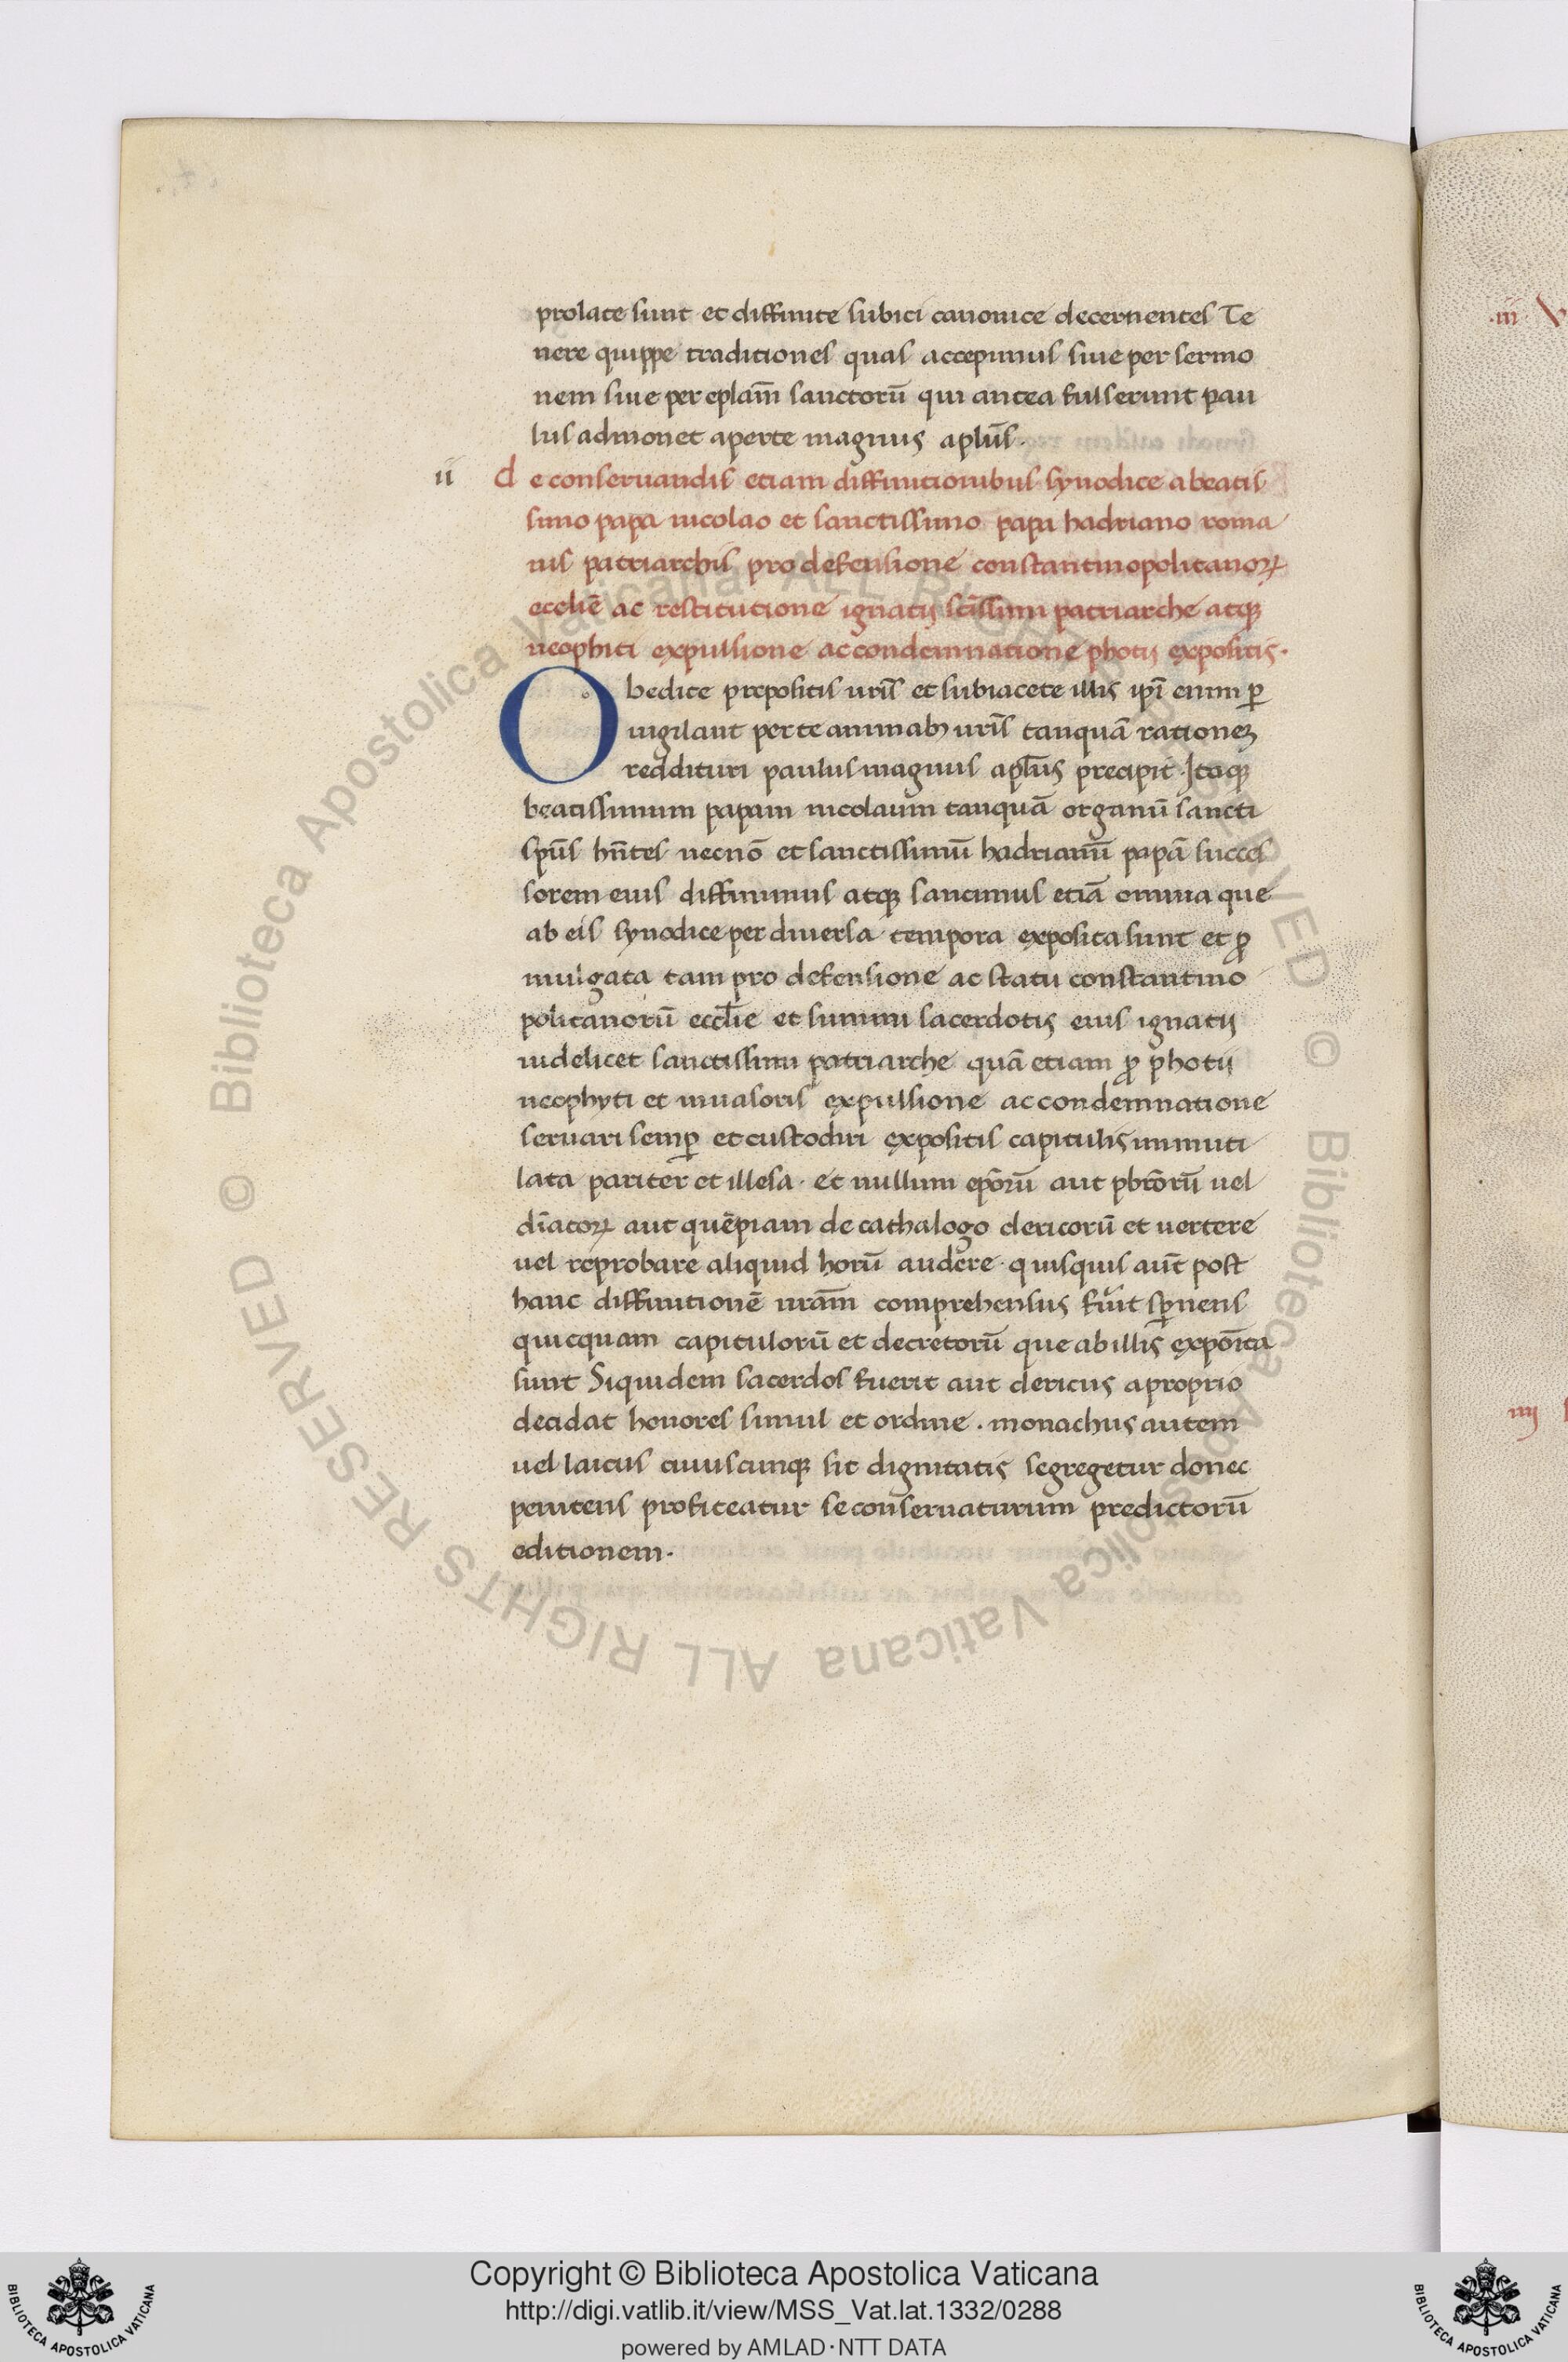 prolate sunt et diffinite subici canonice decernentes Te
nere quippe traditiones quas accepimus siue per sermo
nem siue per eplam̄ sanctorū qui antea fulserunt pau
lus admonet aperte magnus aplūs.
ii de conseruandis etiam diffinitionibus synodice a beatis
simo papa nicolao et sanctissimo papa hadriano roma
nis patriarchis pro defensione constantinopolitanoꝝ
ecclīe ac restitutione ignatij sc̄issimi patriarche atqꝫ
neophiti expulsione ac condemnatione photij expositis.
Obedite prepositis uris̄ et subiacete illis ip̄i enim ꝑ
uigilant per te animabꝫ uris̄ tanquā rationeꝫ
reddituri paulus magnus aplūs precipit. Itaqꝫ
beatissimum papam nicolaum tanquā organū sancti
spūs hn̄tes necnō et sanctissimū hadrianū papā succes
sorem eius diffinimus atqꝫ sancimus etiā omnia que
ab eis synodice per diuersa tempora exposita sunt et ꝓ
mulgata tam pro defensione ac statu constantino
politanorū eccl̄ie et summi sacerdotis eius ignatij
uidelicet sanctissimi patriarche quā etiam ꝓ photii
neophyti et inuasoris expulsione ac condemnatione
seruari semꝑ et custodiri expositis capitulis immuti
lata pariter et illesa. et nullum epōrū aut pbrōrū uel
dīacoꝝ aut quēpiam de cathalogo clericorū et uertere
uel reprobare aliquid horū audere. quisquis aut̄ post
hanc diffinitionē nram̄ comprehensus fuīt sꝑnens
quicquam capitulorū et decretorū que ab illis expōita
sunt Siquidem sacerdos fuerit aut clericus a proprio
decidat honores simul et ordine. monachus autem
uel laicus cuiuscunqꝫ sit dignitatis segregetur donec
penitens profiteatur se conseruaturum predictorū
editionem.
.iii.
iiij
© Biblioteca Apostolica Vaticana ALL RIGHTS RESERVED © Biblioteca Apostolica Vaticana ALL RIGHTS RESERVED
Copyright © Biblioteca Apostolica Vaticana
http://digi.vatlib.it/view/MSS_Vat.lat.1332/0288
powered by AMLAD·NTT DATA
BIBLIOTECA APOSTOLICA VATICANA
BIBLIOTECA APOSTOLICA VATICANA